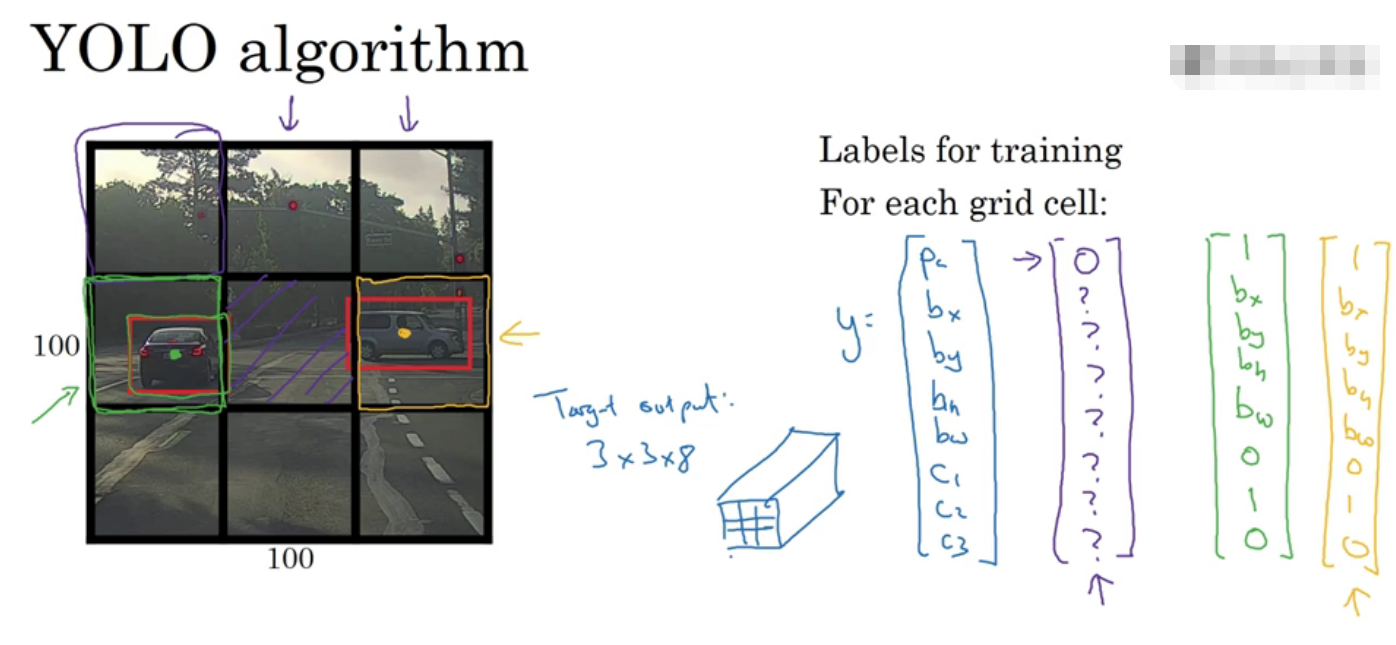 YOLO algorithm
Labels for training
For each grid cell:
100
100
Target output:
3×3×8
y=
Pc
bx
by
bh
bw
C1
C2
C3
0
?
?
?
?
?
?
?
1
bx
by
bh
bw
0
1
0
1
bx
by
bh
bw
0
1
0